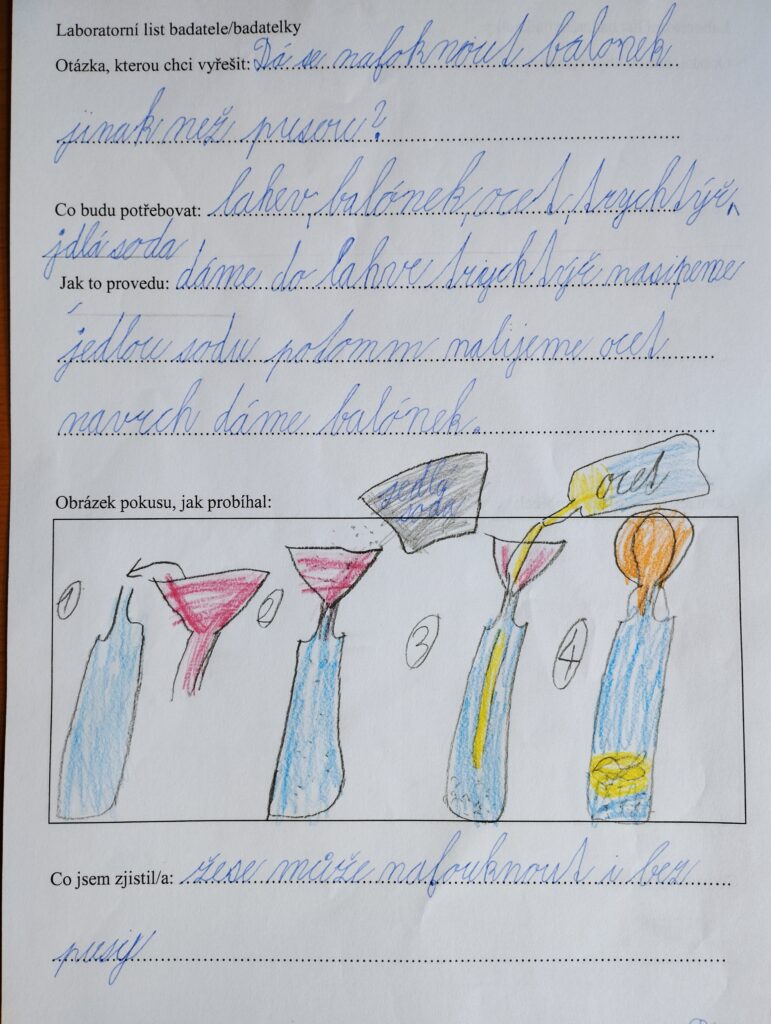 Laboratorní list badatele/badatelky
Otázka, kterou chci vyřešit: Dá se nafoknout bálonek
jinak než pusou?
Co budu potřebovat: lahev, balónek, ocet, trychtýř,
jdlá soda
Jak to provedu: dáme do lahve trychtýř nasipeme
jedlou sodu potomm nalijeme ocet
navrch dáme balónek.
Obrázek pokusu, jak probíhal:
jedlá
soda
ocet
1
2
3
4
Co jsem zjistil/a: žese může nafouknout i bez
pusy